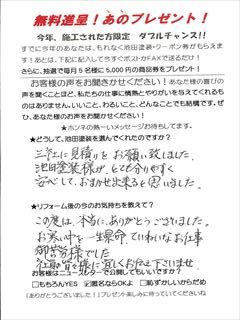 無料進呈！あのプレゼント！
今年、施工された方限定　ダブルチャンス!!
すでに今年のあなたは、もれなく池田塗装・クーポン券がもらえま
す！あとは、下記に記入して今すぐポストかFAXで送るだけ！
さらに、抽選で毎月5名様に5,000円の商品券をプレゼント！
お客様の声をお聞きかせください！あなた様の喜びの
声を聞くことほど、私たちの仕事に情熱とやりがいを与えてくれるも
のはありません。いいこと、わるいこと、どんなことでも結構です。ぜ
ひ、あなたの声をお聞かせください！
★ホンネの熱ーいメッセージお待ちしてます。
★どうして、池田塗装を選んでくれたのですか？
三社に見積りをお願い致しました。
池田塗装様が、とても分りやすく
安心して、おまかせ出来ると思いました。
★リフォーム後の今のお気持ちを教えて？
この度は、本当に、ありがとうございました。
お寒い中を一生懸命、ていねいなお仕事
御苦労様でした
社員の皆々様に宜しくお伝え下さいませ
お客様はニュースレターで公開してもいいですか？
□もちろんYES　☑匿名ならOKよ　□恥ずかしいからだめ
（ありがとうございました！）プレゼント楽しみに待っていてくださいね